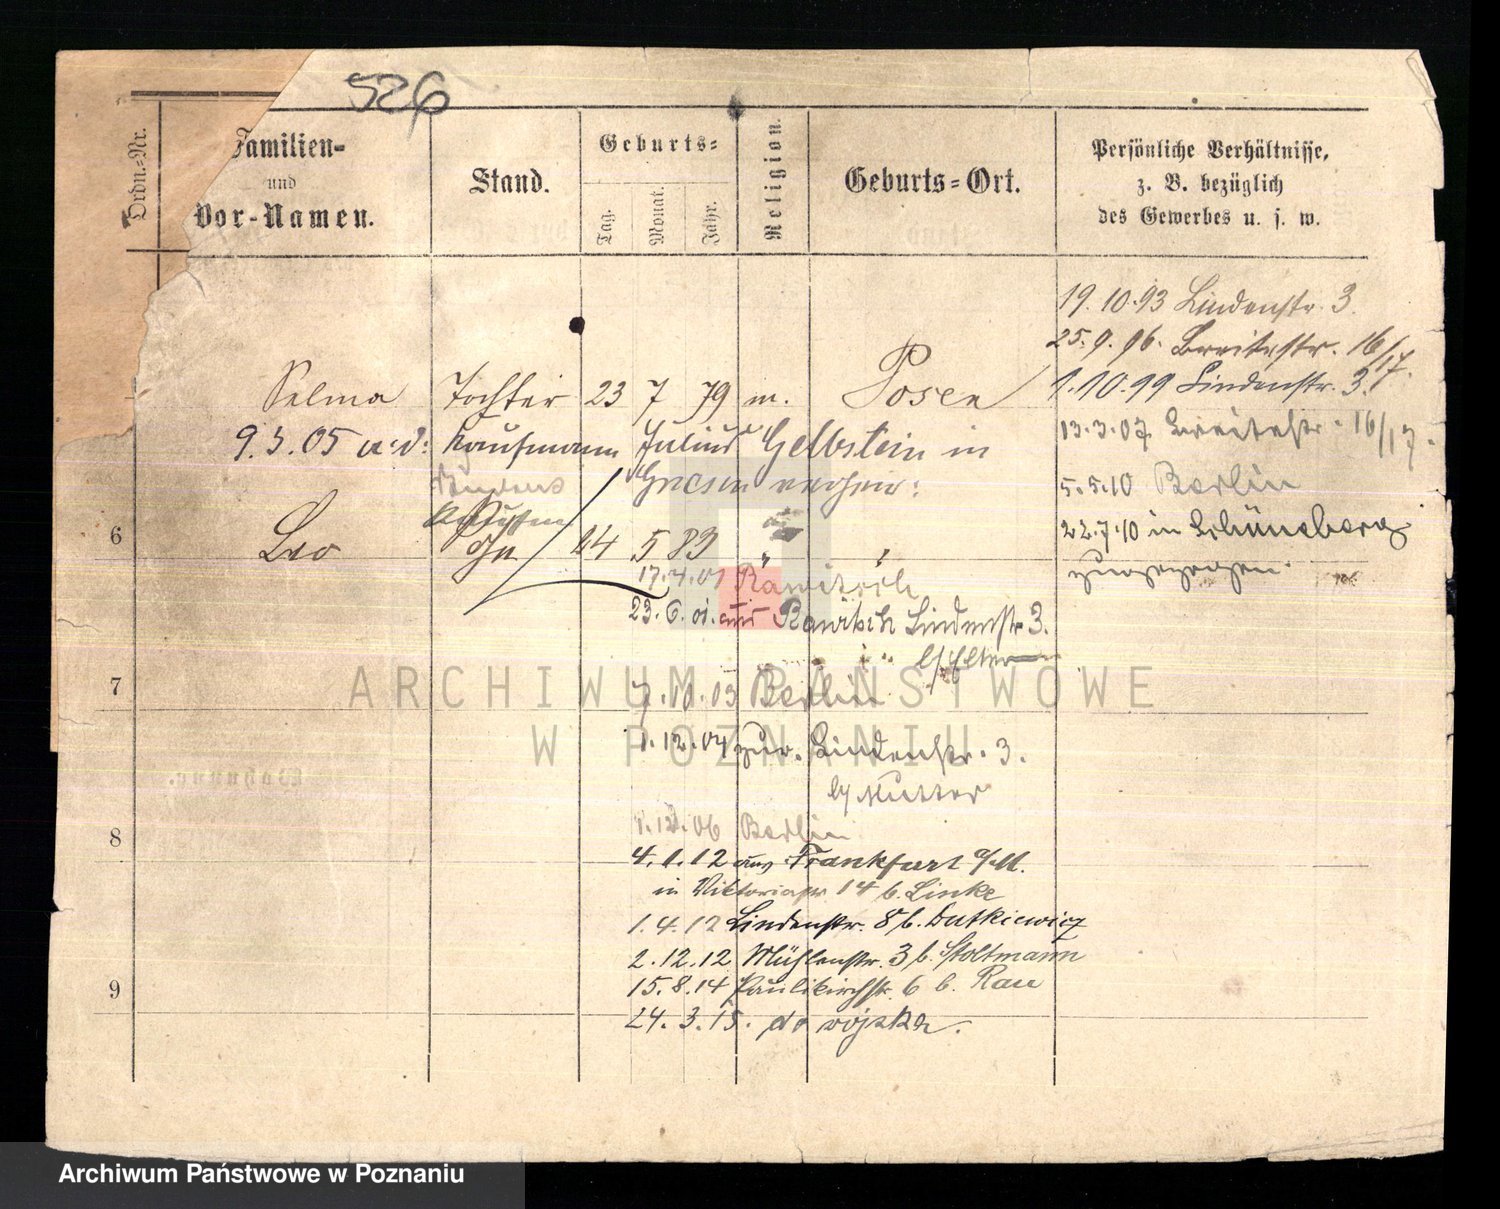 526
Ordn.-Nr.
Familien-
und
Vor-Namen.
Stand.
Geburts-
Tag.
Monat.
Jahr.
Religion.
Geburts-Ort.
Persönliche Verhältnisse,
z. B. bezüglich
des Gewerbes u. s. w.
19.10.93 Lindenstr. 3.
25.9.96. Breitestr. 16/17.
1.10.99 Lindenstr. 3.
13.3.07 Breitestr. 16/17.
5.5.10 Berlin
22.7.10 in Schöneberg
zugezogen.
Selma Tochter 23 7 79 m. Posen
9.5.05 a. d. Kaufmann Julius Gelbstein in
Gnesen verheir:
6 Leo Sohn 24 5 83 " "
17.4.01 Rawitsch
23.6.01. aus Rawitsch Lindenstr. 3.
b/Eltern
7
7.10.03 Berlin
1.12.04 zur. Lindenstr. 3.
b/ Mutter
8
06 Berlin
4.1.12 aus Frankfurt a/M.
in Viktoriastr 14 b. Linke
1.4.12 Lindenstr. 8 b. Dutkiewicz
2.12.12 Mühlenstr. 3 b. Stoltmann
9
15.8.14 Paulikirchstr. 6 b. Rau
24.3.15. do wojska.
ARCHIWUM PAŃSTWOWE
W POZNANIU
Archiwum Państwowe w Poznaniu